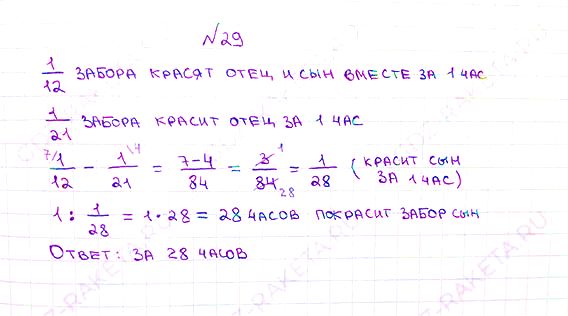 №29
1/12 ЗАБОРА КРАСЯТ ОТЕЦ И СЫН ВМЕСТЕ ЗА 1 ЧАС
1/21 ЗАБОРА КРАСИТ ОТЕЦ ЗА 1 ЧАС
7/ 1/12 - 1/21 \4 = 7-4/84 = 3/84 1 28 = 1/28 (КРАСИТ СЫН ЗА 1 ЧАС)
1 : 1/28 = 1 · 28 = 28 ЧАСОВ ПОКРАСИТ ЗАБОР СЫН
ОТВЕТ: ЗА 28 ЧАСОВ